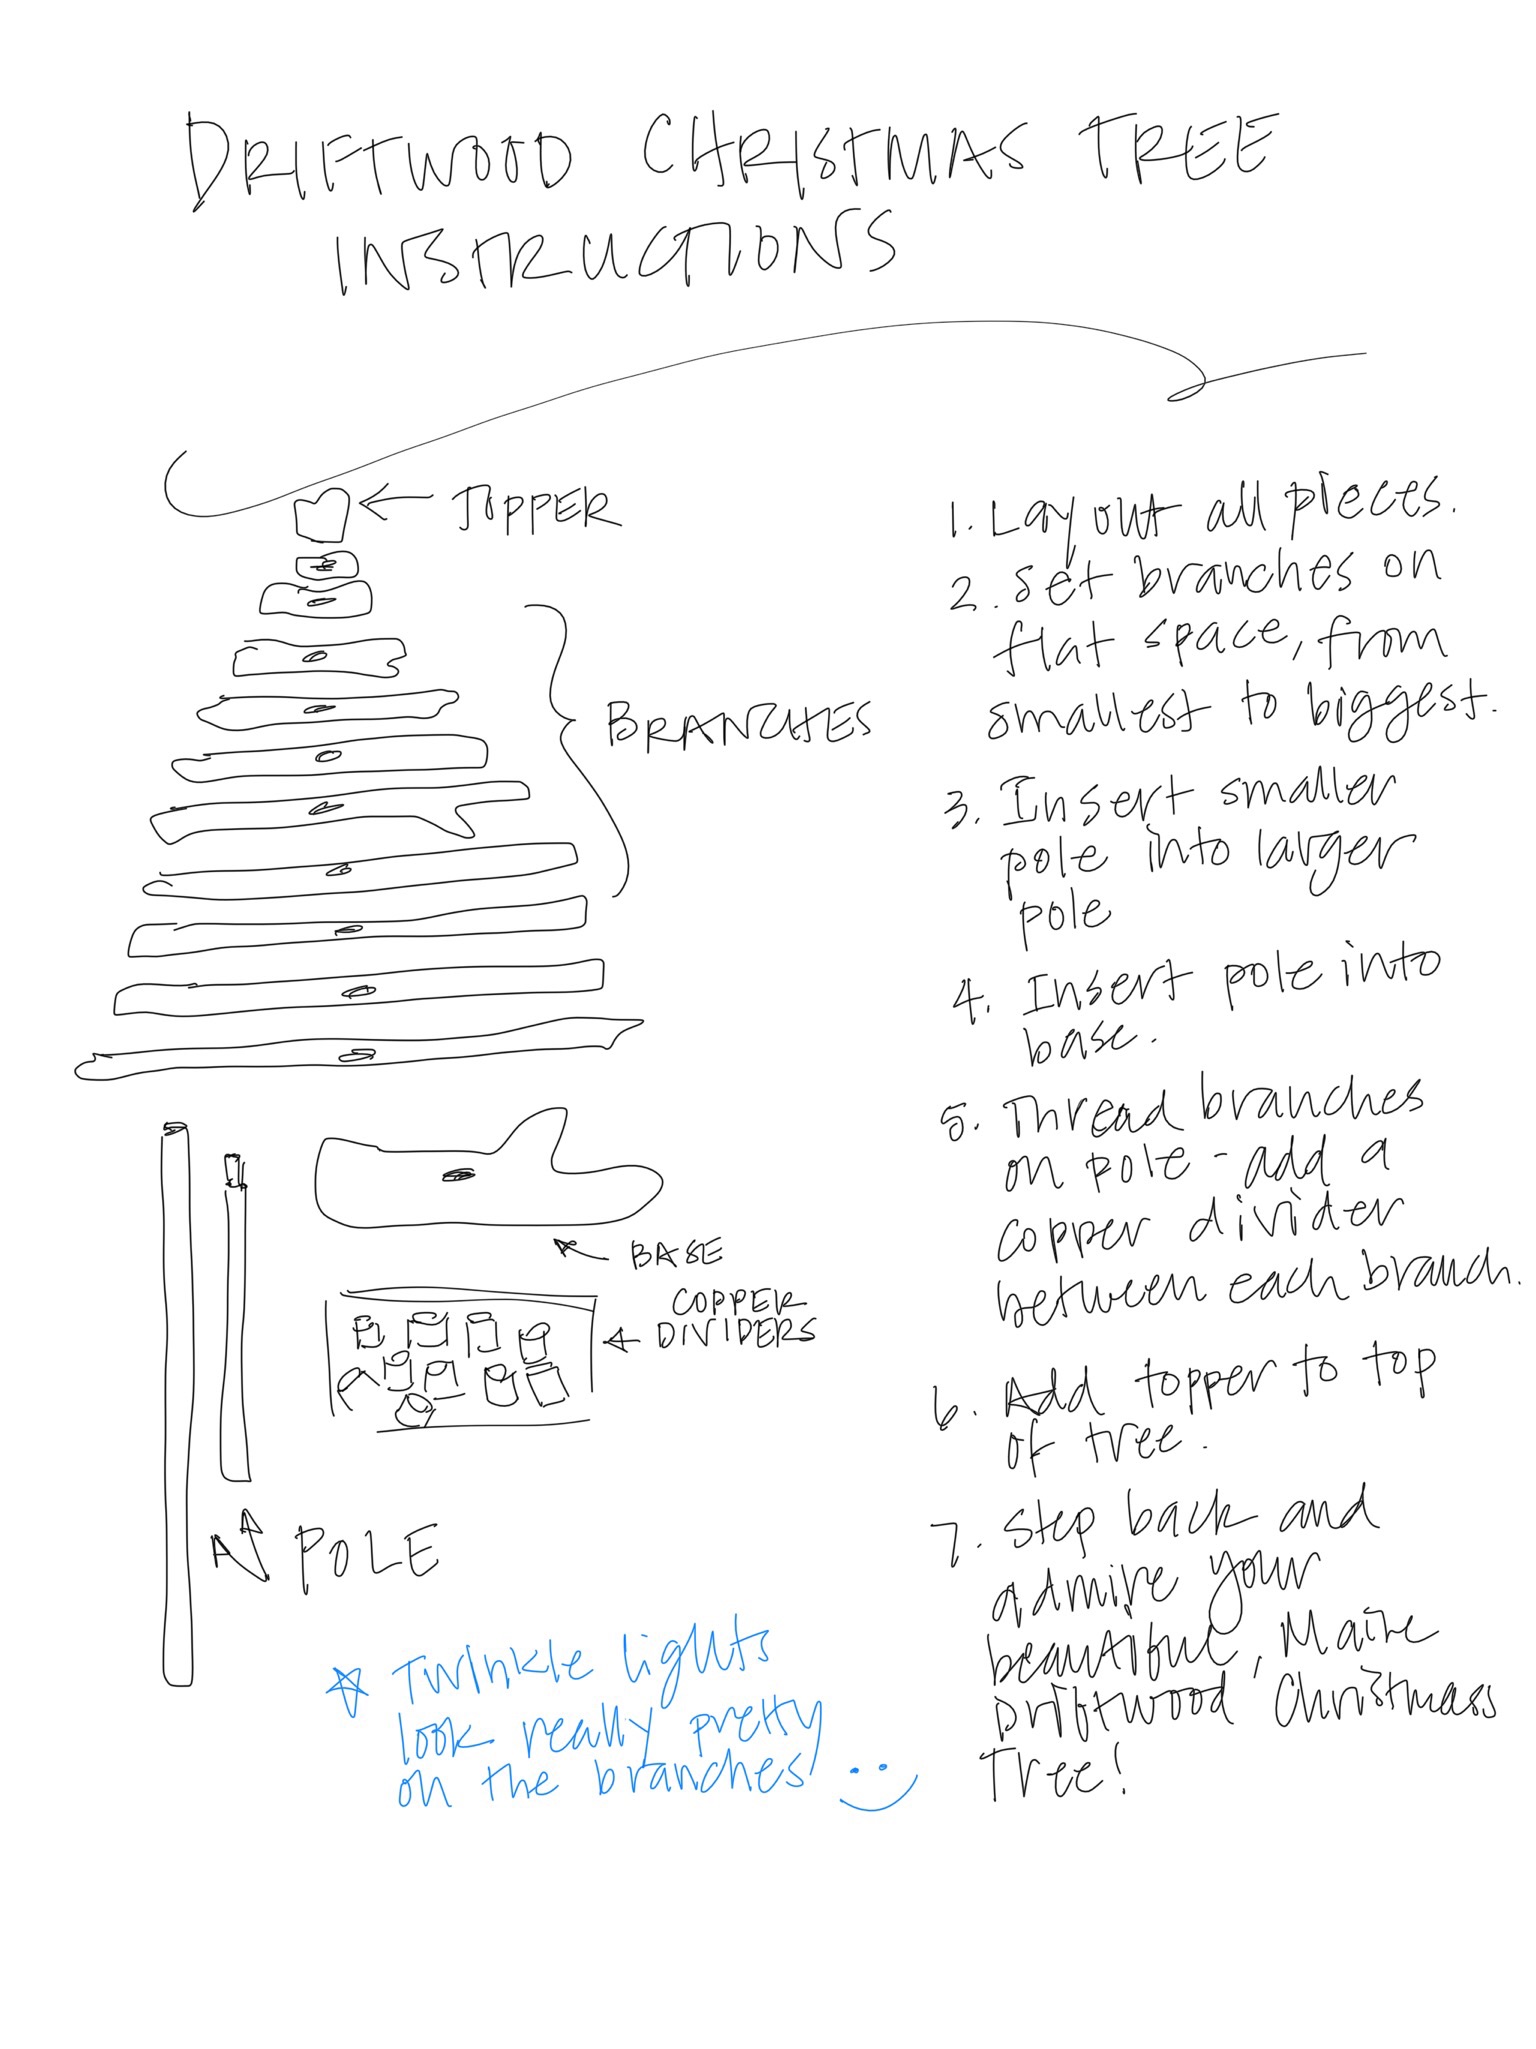 DRIFTWOOD CHRISTMAS TREE
INSTRUCTIONS
TOPPER
BRANCHES
BASE
COPPER
DIVIDERS
POLE
Twinkle lights
look really pretty
on the branches
1. Lay out all pieces.
2. Set branches on
flat space, from
smallest to biggest.
3. Insert smaller
pole into larger
pole
4. Insert pole into
base.
5. Thread branches
on pole - add a
copper divider
between each branch.
6. Add topper to top
of tree.
7. Step back and
admire your
beautiful, Maine
Driftwood Christmass
Tree!